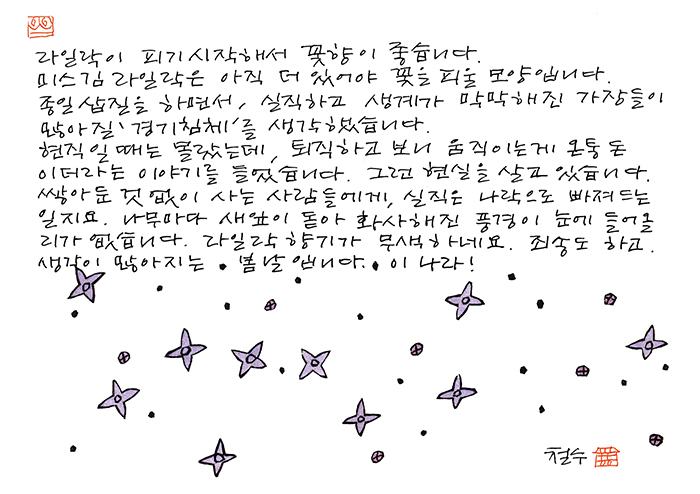 라일락이 피기 시작해서 꽃향이 좋습니다.
미스김 라일락은 아직 더 있어야 꽃을 피울 모양입니다.
종일 삽질을 하면서, 실직하고 생계가 막막해진 가장들이
많아질 '경기침체'를 생각했습니다.
현직일 때는 몰랐는데, 퇴직하고 보니 움직이는게 온통 돈
이더라는 이야기를 들었습니다. 그런 현실을 살고 있습니다.
쌓아둔 것 없이 사는 사람들에게, 실직은 나락으로 빠져드는
일지요. 나무마다 새잎이 돋아 화사해진 풍경이 눈에 들어올
리가 없습니다. 라일락 향기가 무색하네요. 죄송도 하고.
생각이 많아지는 봄날입니다. 이 나라!
철수